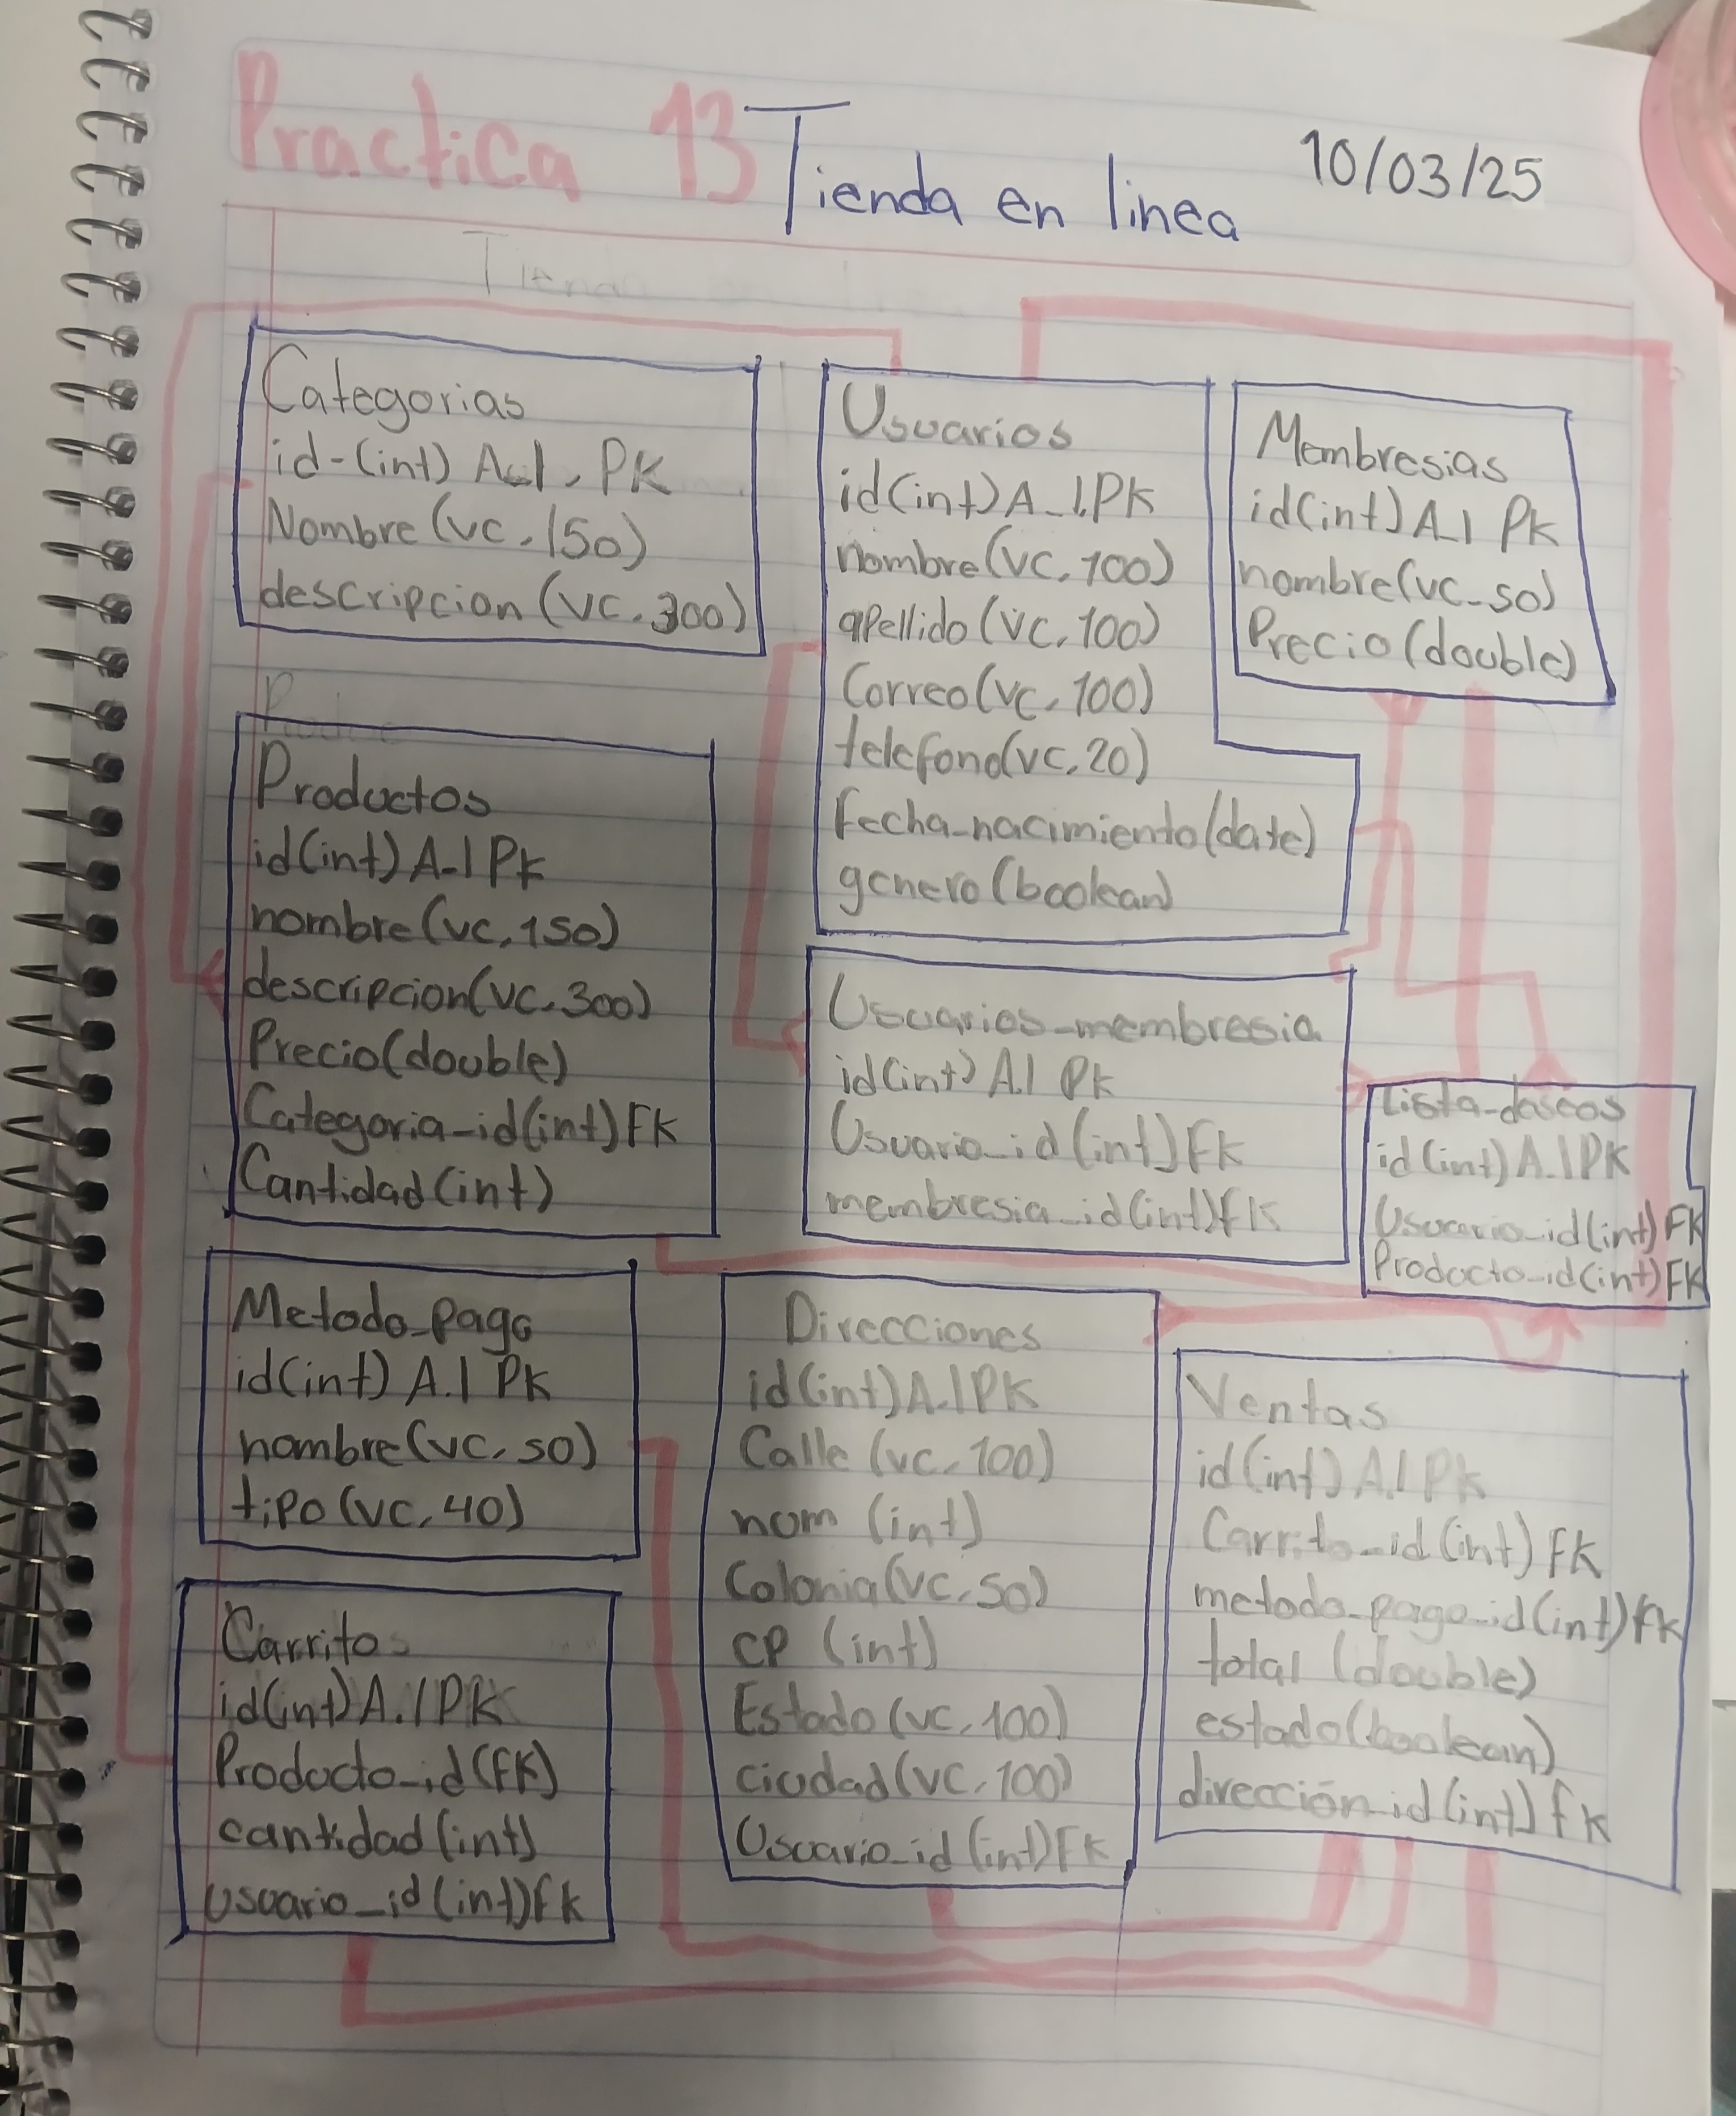 Practica 13 Tienda en linea 10/03/25
Tienda
Categorias
id-(int) A.I, PK
Nombre (vc, 150)
descripcion (vc, 300)
Usuarios
id(int) A_I,PK
nombre (vc, 100)
apellido (vc, 100)
Correo (vc, 100)
telefono(vc, 20)
fecha_nacimiento (date)
genero (boolean)
Membresias
id(int) A_I PK
nombre(vc_50)
Precio (double)
Productos
id(int) A_I PK
nombre (vc, 150)
descripcion(vc, 300)
Precio(double)
Categoria_id(int) FK
Cantidad (int)
Usuarios_membresia
id(int) A.I PK
Usuario_id (int) FK
membresia_id(int) fK
Lista_deseos
id (int) A.I PK
Usuario_id(int) FK
Producto_id(int) FK
Metodo_pago
id(int) A.I PK
nombre (vc, 50)
tipo (vc, 40)
Direcciones
id(int) A.I PK
Calle (vc, 100)
nom (int)
Colonia (vc, 50)
CP (int)
Estado (vc, 100)
ciudad (vc, 100)
Usuario_id (int) FK
Ventas
id(int) A.I PK
Carrito_id (int) FK
metodo_pago_id (int) fK
total (double)
estado (boolean)
dirección_id (int) fK
Carritos
id(int) A.I PK
Producto_id (FK)
cantidad (int)
Usuario_id (int) fK